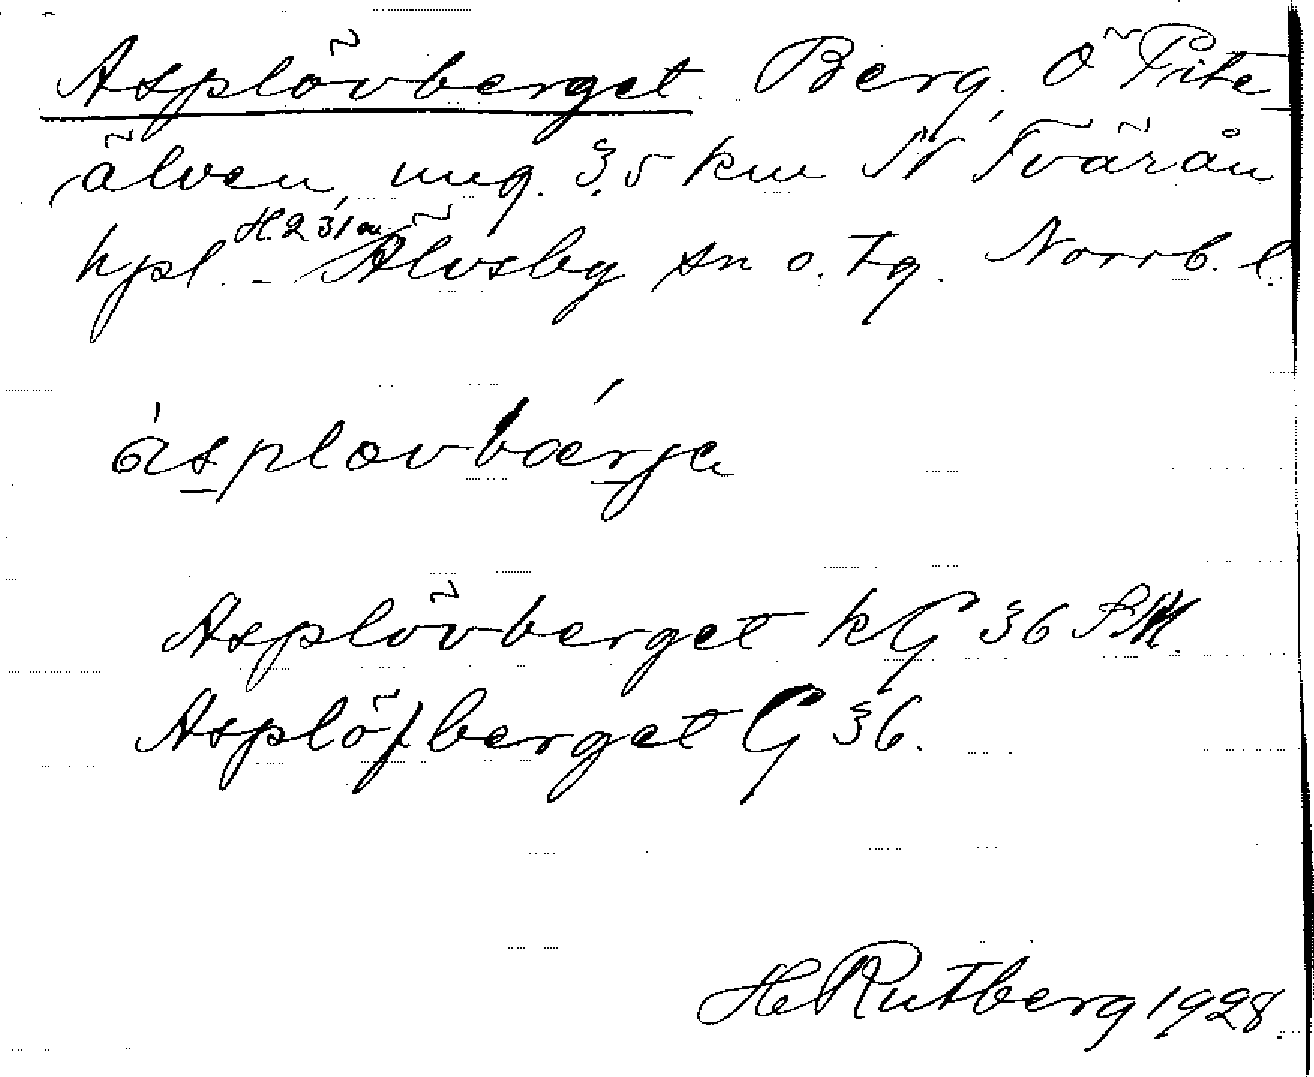 Asplövberget Berg, Ö Pite
älven, ung. 3,5 km N Tvärån
hpl. - Älvsby sn o. tg. Norrb. l.
àsplovbǽrjа
Asplövberget kG 36 SM.
Asplöfberget G 36.
H Rutberg 1928.